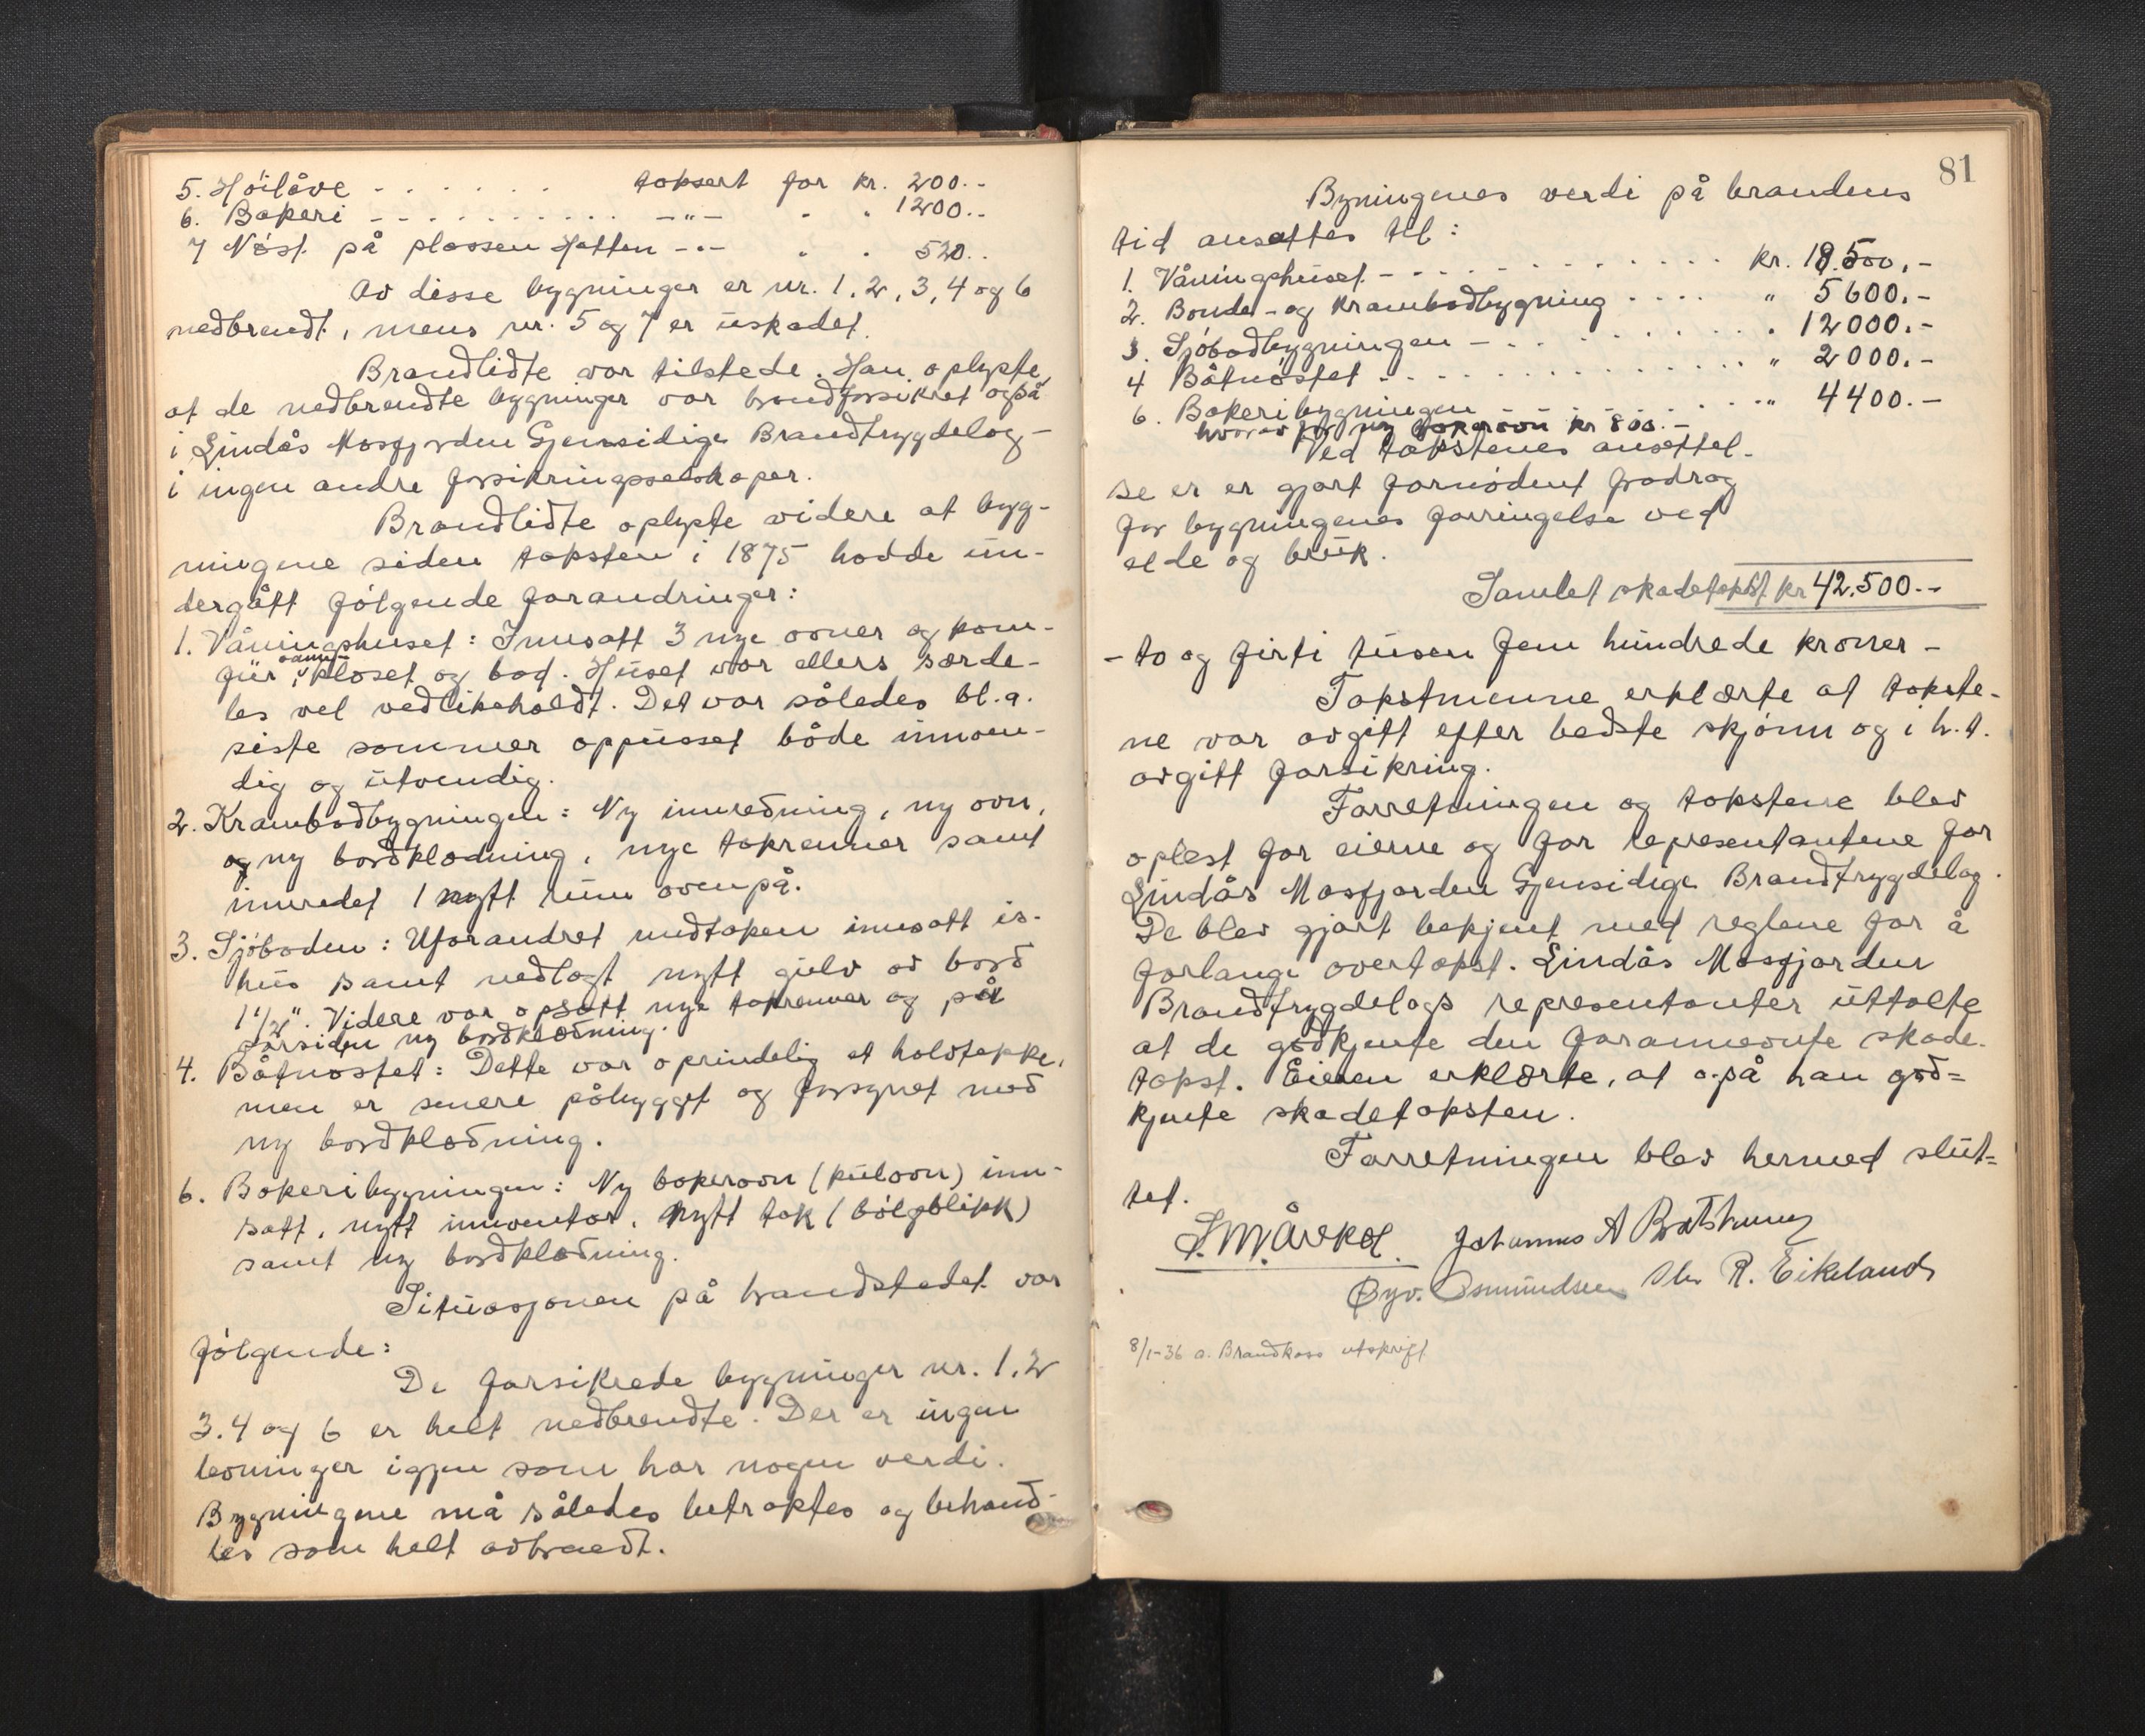 5. Høilåve - - - - - - taksert for kr. 200.-
6. Bakeri - - - - - - - - - - -"- " " 1200.-
7 Nøst på plassen Hatten -"- " " 520..
Av disse bygninger er nr. 1, 2, 3, 4 og 6
nedbrendt, mens nr. 5 og 7 er uskadet.
Brandlidte var tilstede. Han oplyste,
at de nedbrendte bygninger var brandforsikret også
i Lindås Masfjorden Gjensidige Brandtrygdelag -
i ingen andre forsikringsselskaper.
Brandlidte oplyste videre at byg-
ningene siden taksten i 1875 hadde un-
dergått følgende forandringer:
1. Våningshuset: Innsatt 3 nye ovner og kom-
fur, vann-
kloset og bad. Huset var ellers særde-
les vel vedlikeholdt. Det var således bl.a.
siste sommer oppusset både innven-
dig og utvendig.
2. Krambodbygningen: Ny innredning, ny ovn,
og ny bordklædning, nye takrenner samt
innredet 1 nytt rum ovenpå.
3. Sjøboden: Uforandret undtaken innsatt is-
hus samt nedlagt nytt gulv av bord
1 1/2". Videre var opsatt nye takrenner og på
forsiden ny bordklædning.
4. Båtnøstet: Dette var oprindelig et halvtekke,
men er senere påbygget og forsynet med
ny bordklædning.
6. Bakeribygningen: Ny bakerovn (kulovn) inn-
satt, nytt inventar, nytt tak (bølgblikk)
samt ny bordklædning.
Situasjonen på brandstedet var
følgende:
De forsikrede bygninger nr. 1, 2
3, 4 og 6 er helt nedbrendte. Der er ingen
levninger igjen som har nogen verdi.
Bygningene må således betraktes og behand-
les som helt avbrendt.
81
Bygningenes verdi på brandens
tid ansattes til:
1. Våningshuset - - - - - - - - - - kr. 18.500.-
2. Bonde- og krambodbygning - - - - " 5600.-
3. Sjøbodbygningen - - - - - - - - " 12000.-
4 Båtnøstet - - - - - - - - - - " 2000.-
6. Bakeribygningen - - - - - - - " 4400.-
hvorav for ny bakerovn kr 800.-
Ved takstenes ansettel-
se er er gjort fornødent fradrag
for bygningenes forringelse ved
elde og bruk.
Samlet skadetakst kr 42.500.-
- to og firti tusen fem hundrede kroner -
Takstmenne erklærte at takste-
ne var avgitt efter bedste skjønn og i h.t.
avgitt forsikring.
Forretningen og takstene blev
oplest for eierne og for representantene for
Lindås Masfjorden Gjensidige Brandtrygdelag.
De blev gjort bekjent med reglene for å
forlange overtakst. Lindås Masfjorden
Brandtrygdelags representanter uttalte
at de godkjente den forannevnte skade-
takst. Eieren erklærte, at også han god-
kjente skadetaksten.
Forretningen blev hermed slut-
tet.
Johannes A
Øyv. Osmundsen R. Eikeland
8/1-36 a. Brandkass utskrift